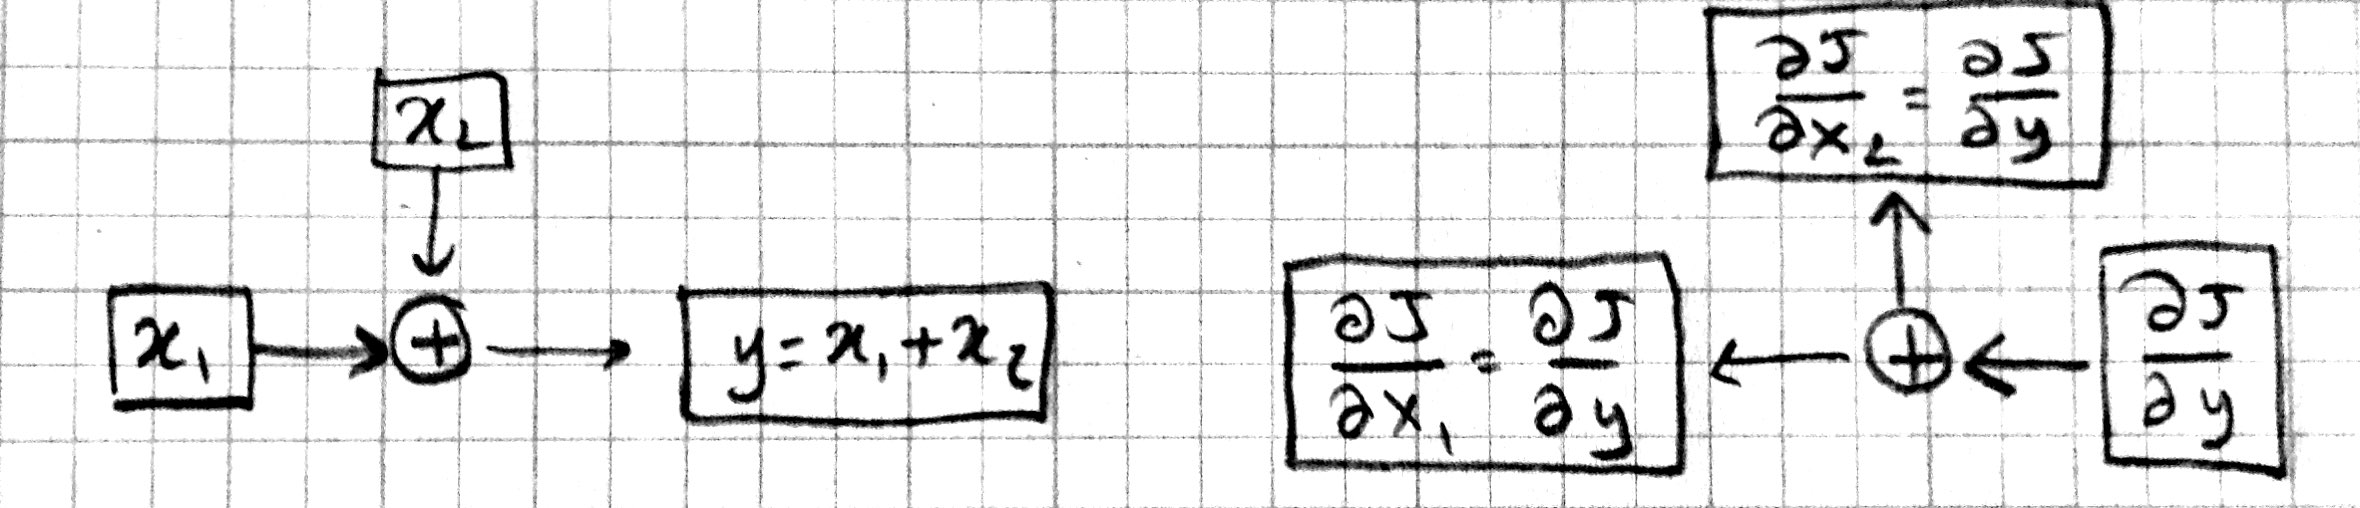 x₂
x₁
+
y = x₁ + x₂
∂J/∂x₂ = ∂J/∂y
∂J/∂x₁ = ∂J/∂y
+
∂J/∂y